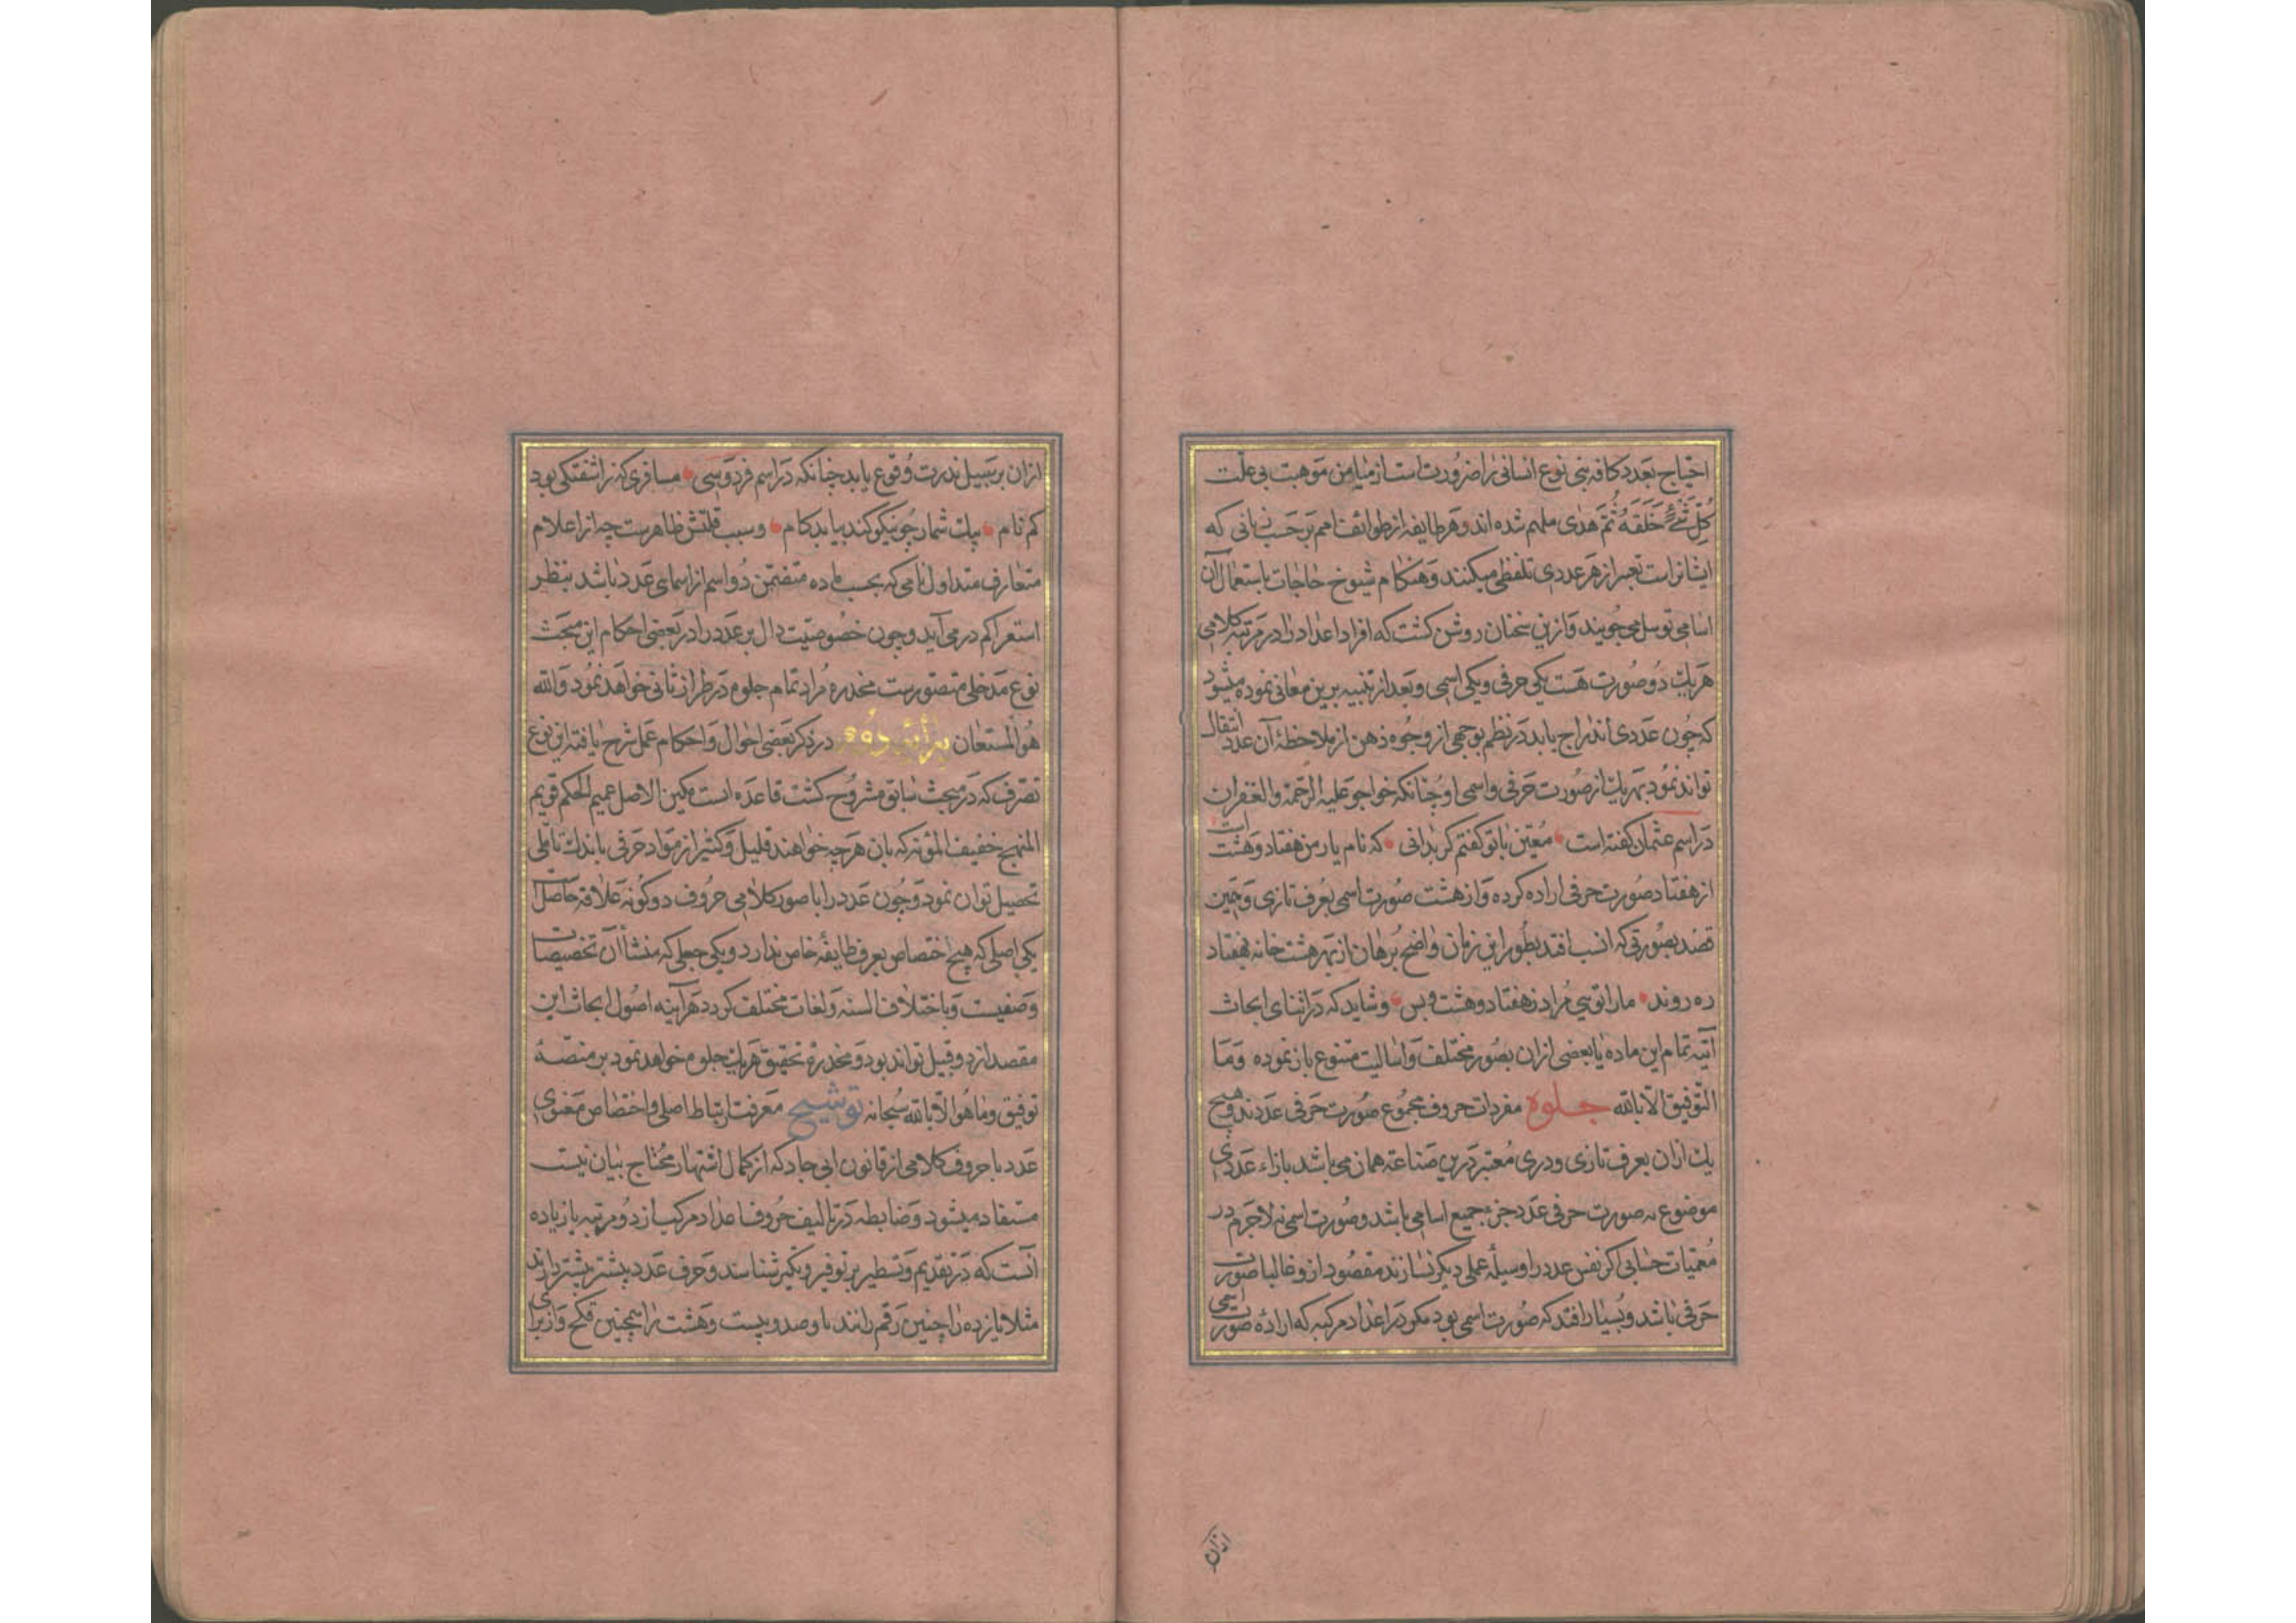 احتیاج بعدد کافه بنی نوع انسانی را ضرورت است از میامن موهبت بی علت
كُلِّ شَئٍ خَلَقَهُ ثُمَّ هَدٰى ملهم شده اند و هر طایفه از طوائف امم بر حسب زبانی که
ایشانراست تعبیر از هر عددی تلفظی میکنند و هنکام شیوخ حاجات باستعمال آن
اسامی توسل میجویند و ازین سخنان روشن کشت که افراد اعداد را در مرتبه کلامی
هر یک دو صورت هست یکی حرفی و یکی اسمی و بعد از تنبیه برین معانی نموده میشود
که چون عددی اندراج یابد در نظم بوجهی از وجوه ذهن از ملاحظهٔ آن عدد انتقال
تواند نمود بهر یک از صورت حرفی و اسمی او چنانکه خواجو علیه الرحمة والغفران
در اسم عثمان کفته است معین با تو کفتم کر بدانی که نام یار من هفتاد و هشت است
از هفتاد صورت حرفی اراده کرده و از هشت صورت اسمی بعرف تازی و چنین
قصد بصورتی که انسب افتد بطور این زمان واضح برهان از بهر هشت خانه هفتاد
ره روند ما را تویی مراد ز هفتاد و هشت و بس و شاید که در اثنای ابحاث
آتیه تمام این ماده یا بعضی ازان بصور مختلف و اسالیب متنوع باز نموده وَمَا
التوفیق الا بالله جلوه مفردات حروف مجموع صورت حرفی عددند و هیچ
یک ازان بعرف تازی و دری معتبر درین صناعة همان می باشد بازاء عددی
موضوع نه صورت حرفی عدد جزء جمیع اسامی باشد و صورت اسمی نه لاجرم در
معمیات حسابی اکر نفس عدد را وسیلهٔ عملی دیکر نسازند مقصود ازو غالبا صورت
حرفی باشد و بسیار افتد که صورت اسمی بود مکر در اعداد مرکبه که ارادهٔ صورت اسمی
ازان
ازان بر سبیل ندرت وقوع یابد چنانکه در اسم فردوسی مسافری که ز اشفتکی بود
کم نام بیک شمار چو نیکو کند بیابد کام و سبب قلتش ظاهرست چه از اعلام
متعارف متداول نامی که بحسب ماده متضمن دو اسم از اسمای عدد باشد بنظر
استعرا کم در می آید و چون خصوصیت دال بر عدد را در بعضی احکام این مبحث
نوع مدخلی متصورست مخدرهٔ مراد تمام جلوه در طراز ثانی خواهد نمود والله
هو المستعان دوم در ذکر بعضی احوال و احکام عمل شرح یافته این نوع
تصرف که در مبحث سابق مشروح کشت قاعده است مکین الاصل عمیم الحکم قویم
المنهج خفیف المؤنه که بان هر چه خواهند قلیل و کثیر از مواد حرفی باندک تاملی
تحصیل توان نمود و چون عدد را با صور کلامی حروف دو کونه علاقه حاصل است
یکی اصلی که هیچ اختصاص بعرف طایفهٔ خاص ندارد و یکی جعلی که منشأ آن تخصیصات
وضعیست و باختلاف السنه و لغات مختلف کردد هر آینه اصول ابحاث این
مقصد از دو قبیل تواند بود و مخدرهٔ تحقیق هر یک جلوه خواهد نمود بر منصهٔ
توفیق وما هو الا بالله سبحانه توشیح معرفت ارتباط اصلی و اختصاص معنوی
عدد با حروف کلامی از قانون ابی جاد که از کمال اشتهار محتاج بیان نیست
مستفاد میشود و ضابطه در تالیف حروف اعداد مرکب از دو مرتبه یا زیاده
آنست که در تقدیم و تسطیر بر توفیر و تکثیر شناسند و حرف عدد بیشتر پیشتر دارند
مثلا یازده را چنین رقم رانند یا و صد و بیست و هشت را همچنین قکح و از برای